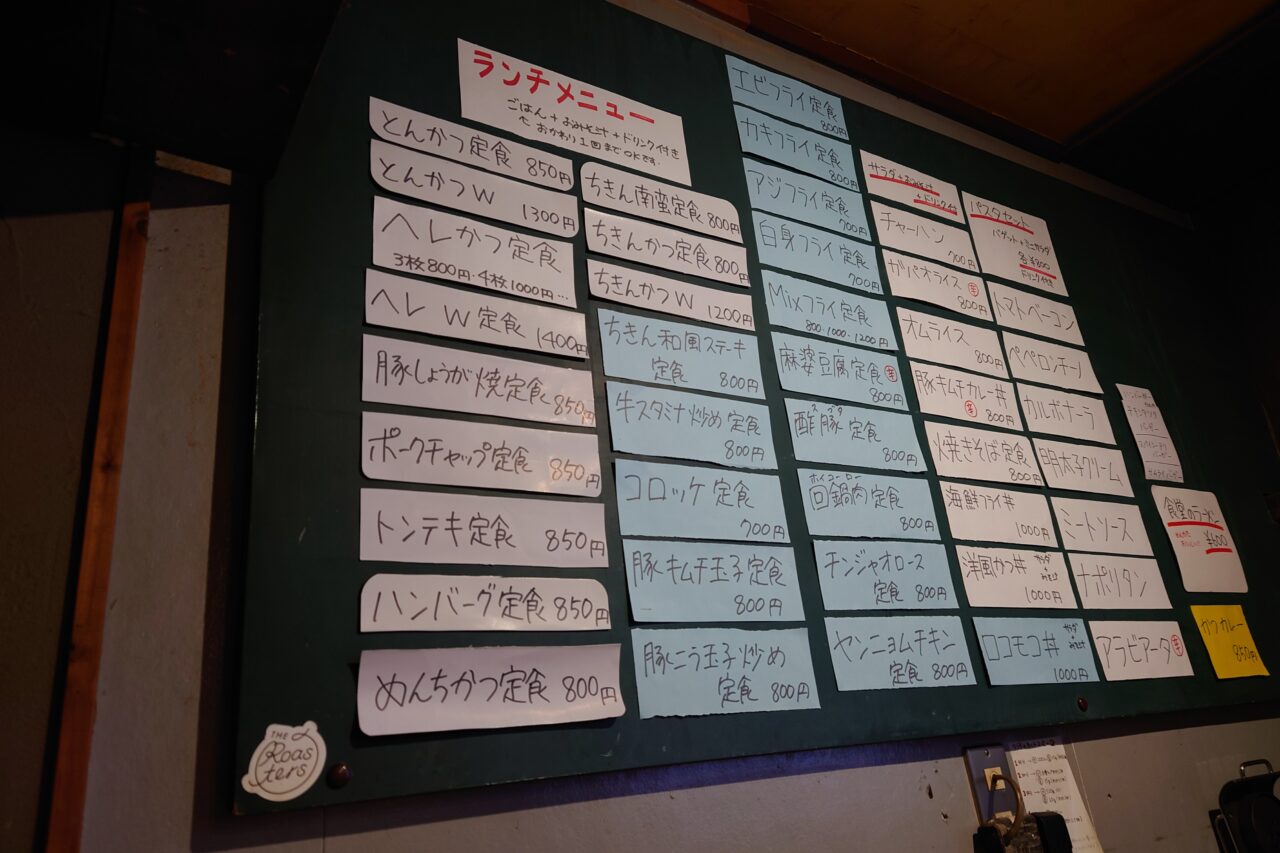 ランチメニュー
ごはん+おみそ汁+ドリンク付き
おかわり1回までOKです。
とんかつ定食 850円
とんかつW 1300円
ヘレかつ定食
3枚800円・4枚1000円…
ヘレW定食 1400円
豚しょうが焼定食 850円
ポークチャップ定食 850円
トンテキ定食 850円
ハンバーグ定食 850円
めんちかつ定食 800円
ちきん南蛮定食 800円
ちきんかつ定食 800円
ちきんかつW 1200円
ちきん和風ステーキ
定食 800円
牛スタミナ炒め定食
800円
コロッケ定食
700円
豚キムチ玉子定食
800円
豚ニラ玉子炒め
定食 800円
エビフライ定食
800円
カキフライ定食
800円
アジフライ定食
700円
白身フライ定食
700円
Mixフライ定食
800・1000・1200円
麻婆豆腐定食 辛
800円
スブタ
酢豚定食
800円
ホイコーロー
回鍋肉定食
800円
チンジャオロース
定食 800円
ヤンニョムチキン
定食 800円
サラダ+おみそ汁
+ドリンク付
チャーハン
700円
ガパオライス 辛
800円
オムライス
800円
豚キムチカレー丼
辛 800円
焼きそば定食
800円
海鮮フライ丼
1000円
洋風かつ丼 サラダ
+みそ汁
1000円
ロコモコ丼 サラダ
+みそ汁
1000円
パスタセット
バゲット+ミニサラダ
各¥800
ドリンク付き
トマトベーコン
ペペロンチーノ
カルボナーラ
明太子クリーム
ミートソース
ナポリタン
アラビアータ 辛
食堂のラーメン
¥600
カツカレー
850円
THE
Roas
ters